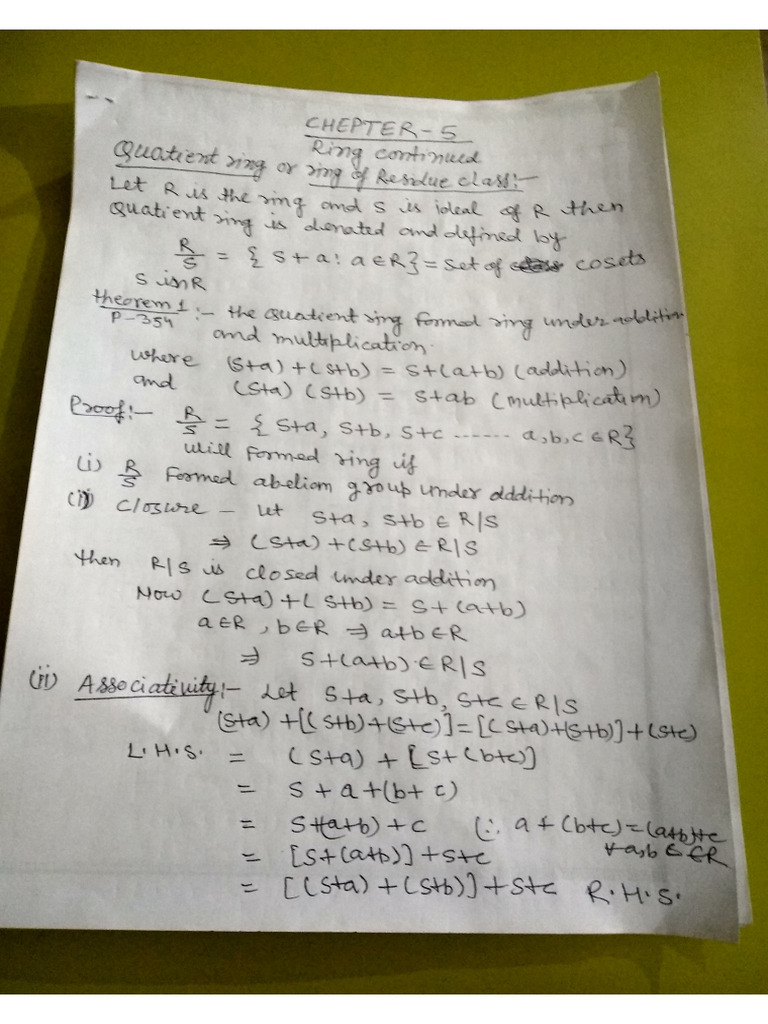 CHEPTER-5
Ring continued
Quatient ring or ring of Residue class:-
Let R is the ring and S is ideal of R then
Quatient ring is denated and defined by
R/S = { S+a : a ∈ R } = set of cosets
S in R
theorem 1 :- the Quatient ring formed ring under addition
P-354
and multiplication.
where (S+a)+(S+b) = S+(a+b) (addition)
and (S+a) (S+b) = S+ab (multiplication)
Proof:- R/S = { S+a, S+b, S+c ...... a,b,c ∈ R}
will formed ring if
(i) R/S formed abeliom group under dddition
(i) Closure - let S+a, S+b ∈ R|S
⇒ (S+a)+(S+b) ∈ R|S
then R|S is closed under addition
Now (S+a)+(S+b) = S+(a+b)
a∈R, b∈R ⇒ a+b∈R
⇒ S+(a+b)∈R|S
(ii) Associativity:- Let S+a, S+b, S+c ∈ R|S
(S+a)+[(S+b)+(S+c)]=[(S+a)+(S+b)]+(S+c)
L.H.S. = (S+a) + [S+(b+c)]
= S+a+(b+c)
= S+(a+b)+c (∵ a+(b+c)=(a+b)+c
∀ a,b ∈ ∈R
= [S+(a+b)]+S+c
= [(S+a)+(S+b)]+S+c R.H.S.